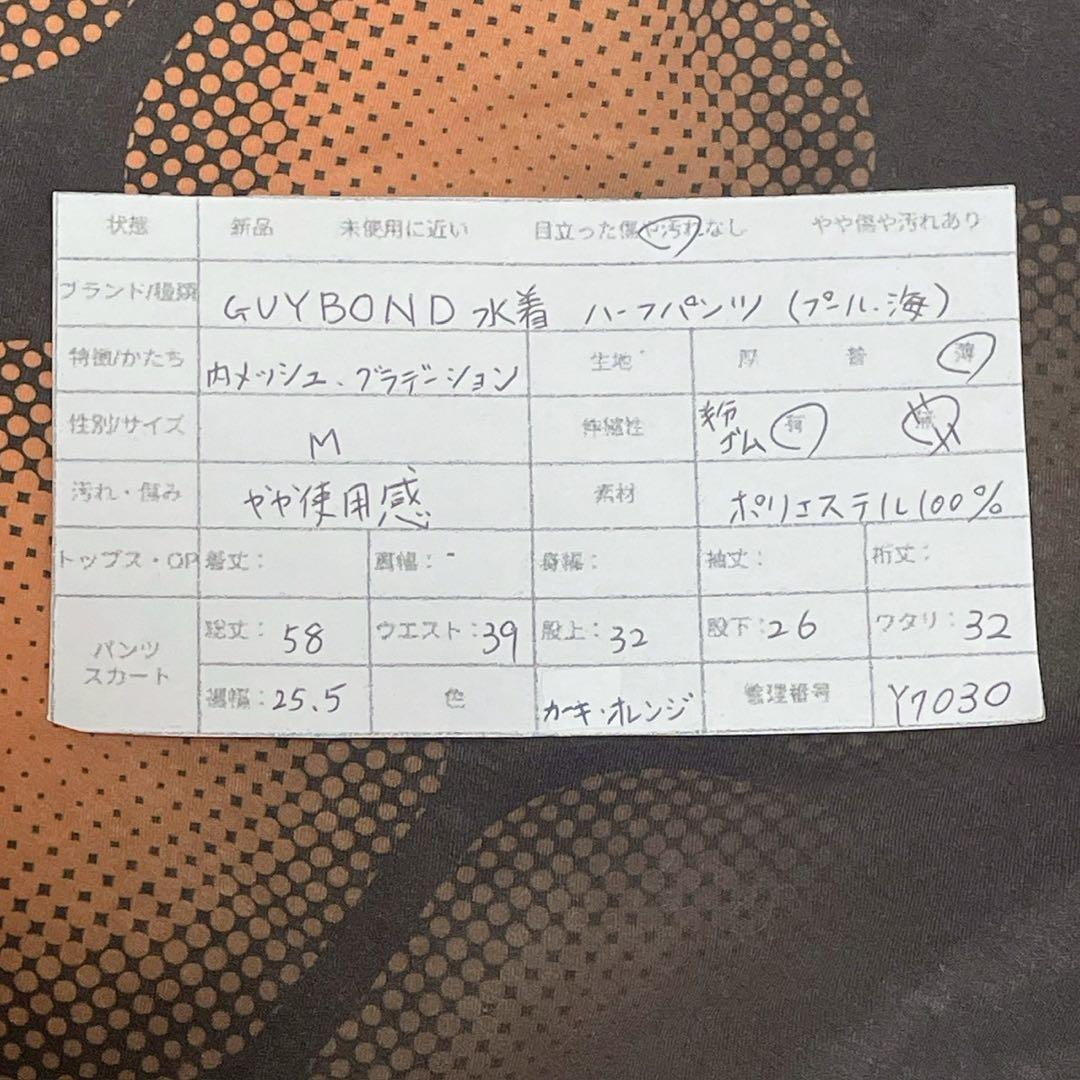 状態 新品 未使用に近い 目立った傷や汚れなし やや傷や汚れあり
ブランド/種類 GUYBOND 水着 ハーフパンツ (プール・海)
特徴/かたち 内メッシュ、グラデーション 生地 厚 普 薄
性別/サイズ M 伸縮性 ゴム 有 無
汚れ・傷み やや使用感 素材 ポリエステル100%
トップス・OP 着丈: 肩幅: - 身幅: 袖丈: 裄丈:
パンツ スカート 総丈: 58 ウエスト: 39 股上: 32 股下: 26 ワタリ: 32
裾幅: 25.5 色 カーキ・オレンジ 管理番号 Y7030